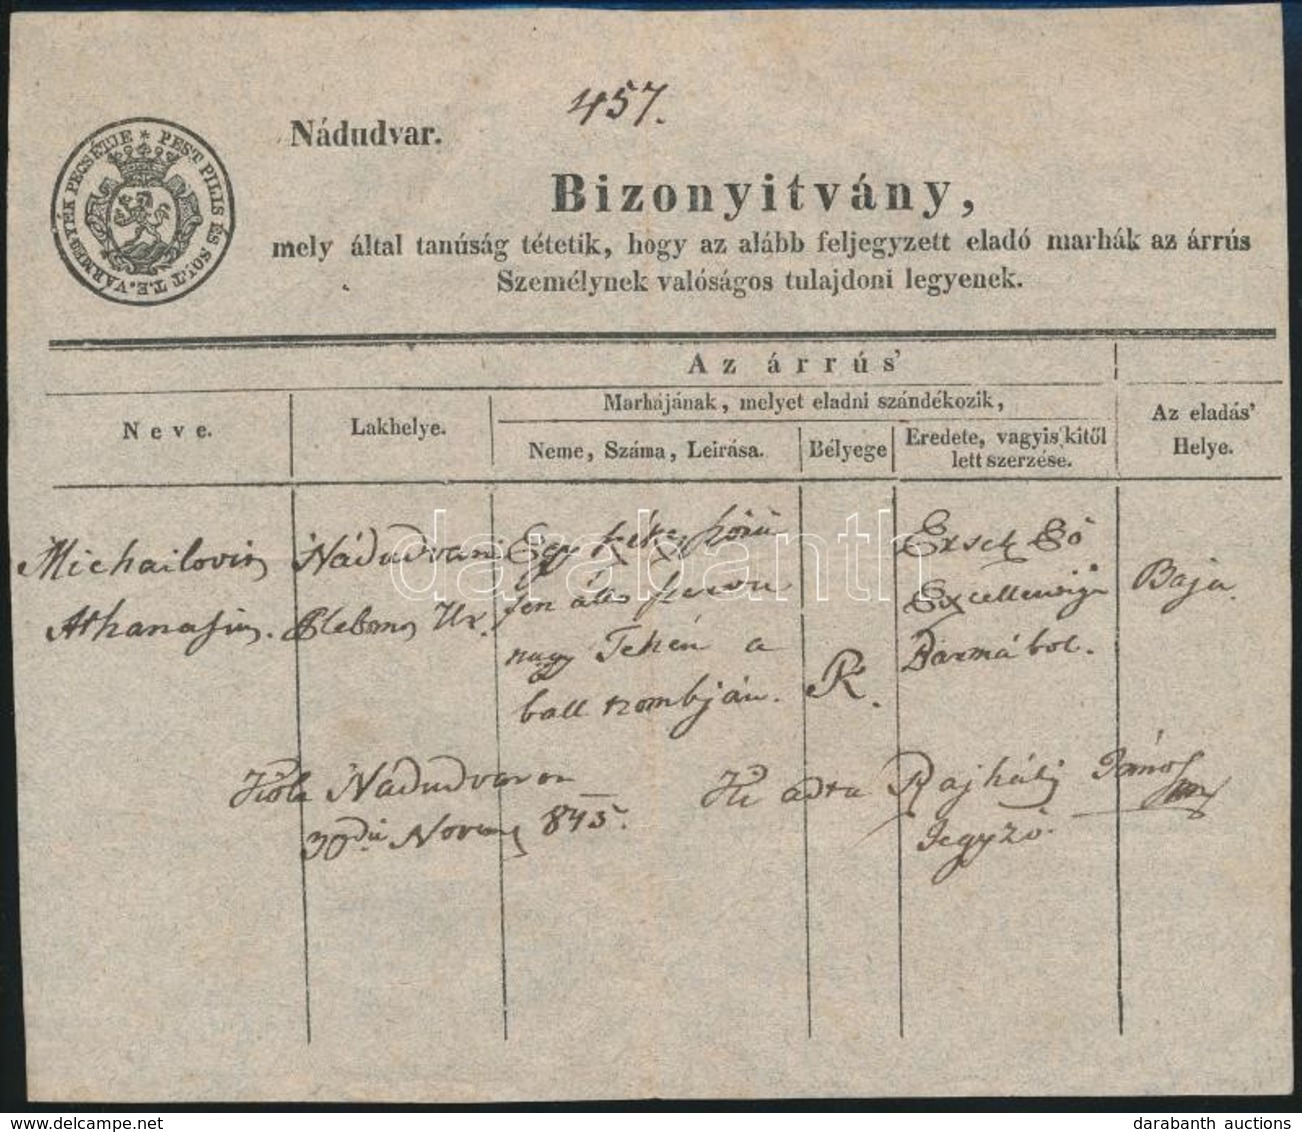 457.
Nádudvar.
PEST PILIS ÉS SOLT T.E. VÁRMEGYÉK PECSÉTJE *
Bizonyitvány,
mely által tanúság tétetik, hogy az alább feljegyzett eladó marhák az árrús
Személynek valóságos tulajdoni legyenek.
Az árrús'
Marhájának, melyet eladni szándékozik,
Neve.
Lakhelye.
Neme, Száma, Leirása.
Bélyege
Eredete, vagyis kitől
lett szerzése.
Az eladás'
Helye.
Michailovin
Athanasius.
Nádudvari
Plebanos Ur.
Egy
nagy Tehén a
ball tzombján.
R.
Ersek Eö
Excellentzija
Barmából.
Baja.
Költ Nádudvaron
30dik Novem 845.
Ki adta Rajháti János
Jegyző.
darabanth
www.delcampe.net
darabanth auctions